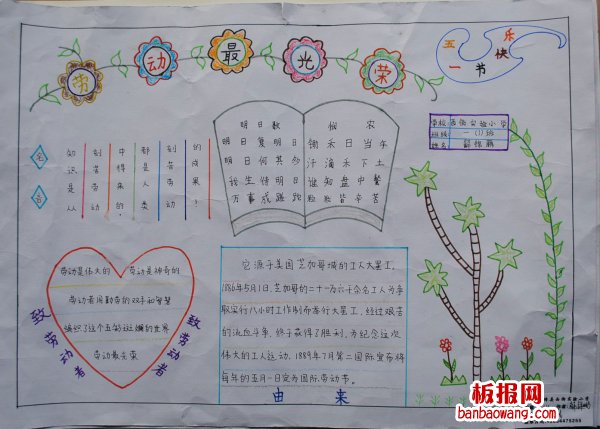 劳动最光荣
五一节快乐
学校 实验小学
班级 一(1)班
姓名
名言
知识是从
刻苦劳动
中得来的,
都是人类
刻苦劳动
的成果!
明日歌
明日复明日
明日何其多
我生待明日
万事成蹉跎
悯农
锄禾日当午
汗滴禾下土
谁知盘中餐
粒粒皆辛苦
致劳动者
劳动是伟大的 劳动是神奇的
劳动者用勤劳的双手和智慧
编织了这个五彩斑斓的世界
劳动最光荣
致劳动者
它源于美国芝加哥城的工人大罢工,
1886年5月1日,芝加哥的二十一万六千余名工人为争
取实行八小时工作制而举行大罢工,经过艰苦
的流血斗争,终于获得了胜利,为纪念这次
伟大的工人运动,1889年7月第二国际宣布将
每年的五月一日定为国际劳动节。
由来
板报网
banbaowang.com